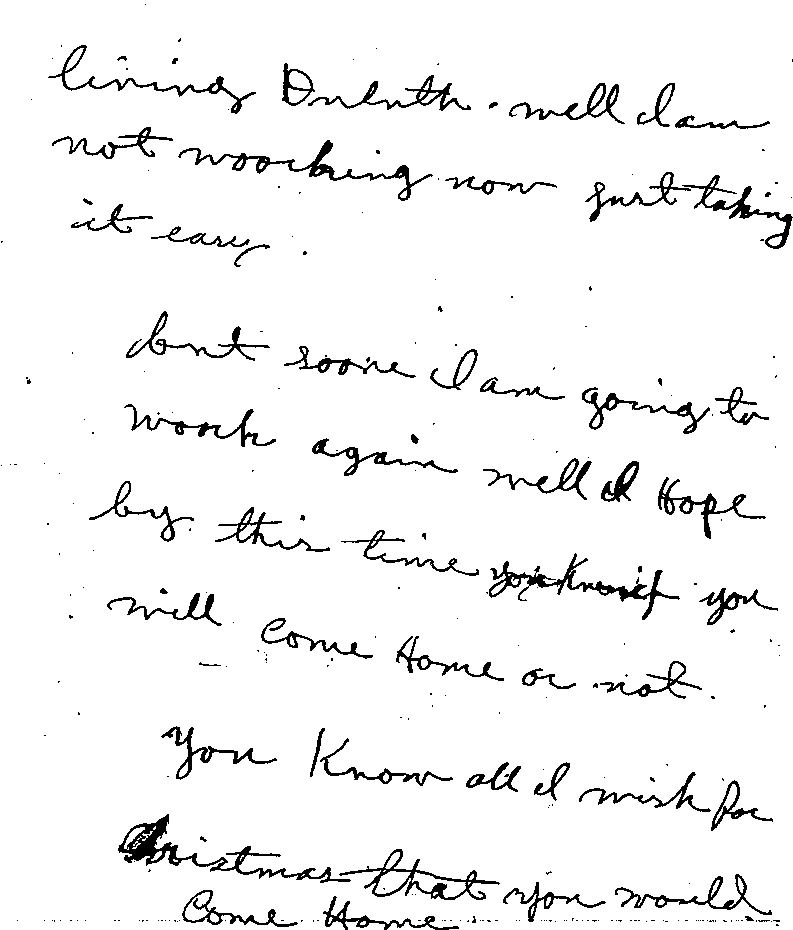 living Duluth. well I am
not woorking now just taking
it easy.
but soone I am going to
woork again well I Hope
by this time you Know if you
will come Home or not.
you Know all I wish for
Christmas that you would
Come Home